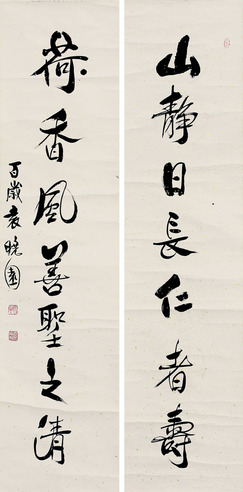 山靜日長仁者壽
荷香風善聖之清
百歲袁曉園